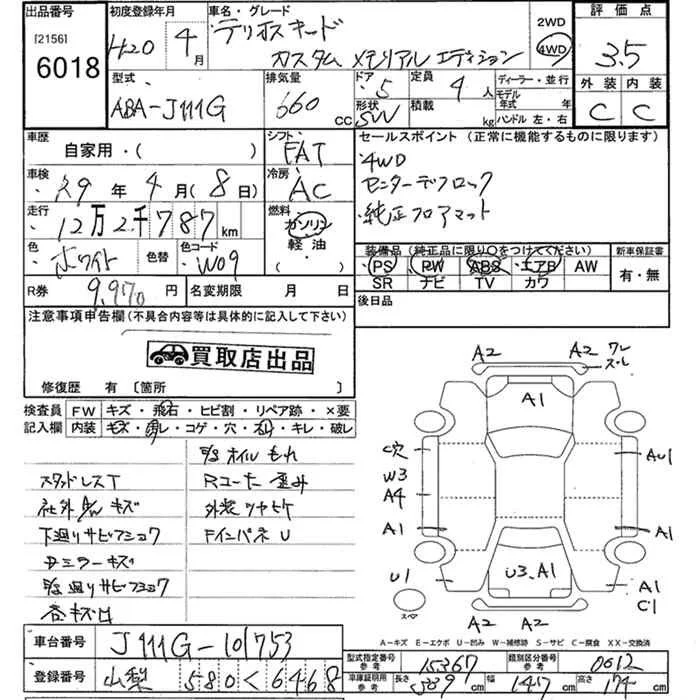 出品番号
[2156]
6018
初度登録年月
H20年4月
車名・グレード
テリオスキッド
カスタム メモリアル エディション
2WD
4WD
評価点
3.5
外装 内装
C C
型式
ABA-J111G
排気量
660 CC
ドア
5
形状
SW
定員
4人
積載
kg
ディーラー・並行
モデル年式 年
ハンドル 左・右
車歴
自家用・( )
車検
29年4月(8日)
走行
12万2千787km
色
ホワイト
色替
色コード
W09
シフト
FAT
冷房
AC
燃料
ガソリン
軽油
( )
セールスポイント (正常に機能するものに限ります)
・4WD
・センターデフロック
・純正フロアマット
装備品 (純正品に限り○をつけてください)
PS PW ABS エアB AW
SR ナビ TV カワ
新車保証書
有・無
R券 9,970円
名変期限 月 日
後日品
注意事項申告欄(不具合内容等は具体的に記入して下さい)
買取店出品
修復歴 有 〔箇所 〕
検査員 FW キズ・飛石・ヒビ割・リペア跡・×要
記入欄 内装 キズ・汚レ・コゲ・穴・スレ・キレ・破レ
スタッドレスT
社外AW キズ
下廻りサビアショック
ミラーキズ
廻りサビアショック
オイルもれ
Rコーナー歪み
外装ツヤヒケ
FインパネU
A2 A2
ワレ
ズレ
A1
C穴
W3
A4
A1
U1
AU1
A1
U3.A1
A1
C1
スペア
A2 A2
A-キズ E-エクボ U-凹み W-補修跡 S-サビ C-腐食 XX-交換済
車台番号
J111G-101753
登録番号
山梨 580 く 6468
型式指定番号
参考
15367
類別区分番号
参考
0012
車庫証明用
参考
長さ 339cm 幅 147cm 高さ 174cm